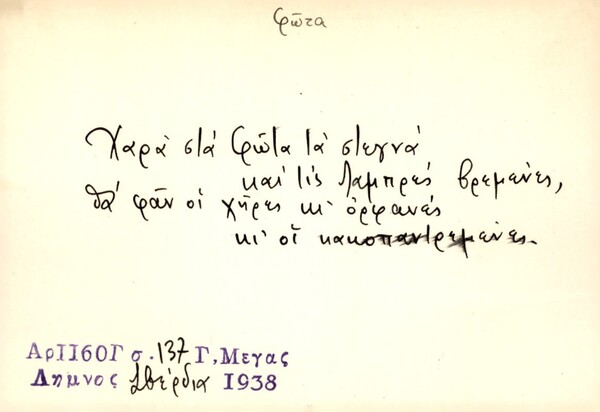 Φῶτα
Χαρὰ στὰ Φῶτα τὰ στεγνὰ
καὶ τὶς Λαμπρὲς βρεμένες,
θὰ φᾶν οἱ χῆρες κι' ὀρφανὲς
κι' οἱ κακοπαντρεμένες.
ΑρΙΙ6ΟΓ σ. 137 Γ, Μεγας
Λημνος Σβέρδια 1938